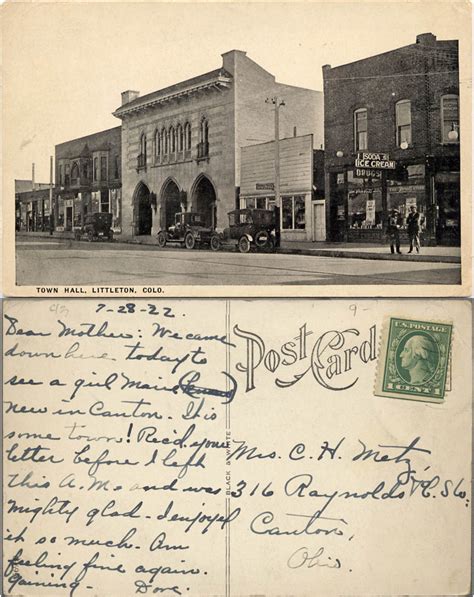 ISODA &
ICE CREAM
DRUGS
TOWN HALL, LITTLETON, COLO.
7-28-22
Dear Mother: We came
down here today to
see a girl Marie
new in Canton. It is
some town! Rec'd your
letter before I left
this A.M. and was
mighty glad. I enjoyed
it so much. Am
feeling fine again.
gaining. Dore
Post Card
BLACK & WHITE
U.S. POSTAGE
1 CENT 1
Mrs. C. H. Metz,
316 Raynolds
Canton,
Ohio.